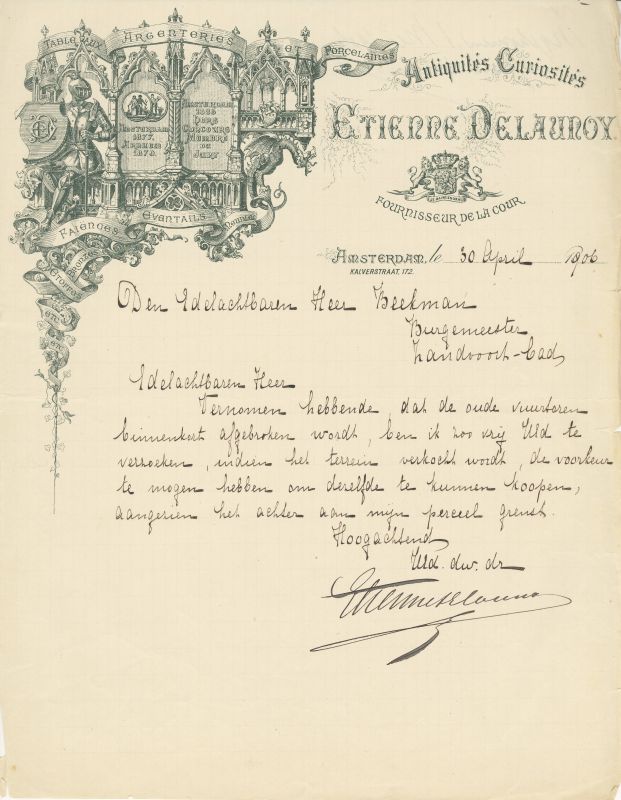 Tableaux Argenteries et Porcelaines
Amsterdam
1877.
Arnhem
1879.
Amsterdam
1883
Hors
Concours
Membre
du
Jury
Faiences Eventails
Bronzes
Etoffes
etc.
etc.
Antiquités, Curiosités
Etienne Delaunoy.
Fournisseur de la Cour.
Amsterdam, le 30 April 1906
Kalverstraat, 172.
Den Edelachtbaren Heer Beekman
Burgemeester
Zandvoort-Bad,
Edelachtbaren Heer
Vernomen hebbende, dat de oude vuurtoren
binnenkort afgebroken wordt, ben ik zoo vrij Uld te
verzoeken, indien het terrein verkocht wordt, de voorkeur
te mogen hebben om derzelfde te kunnen koopen,
aangezien het achter aan mijn perceel grenst.
Hoogachtend
Uld. dw. dr
EtienneDelaunoy